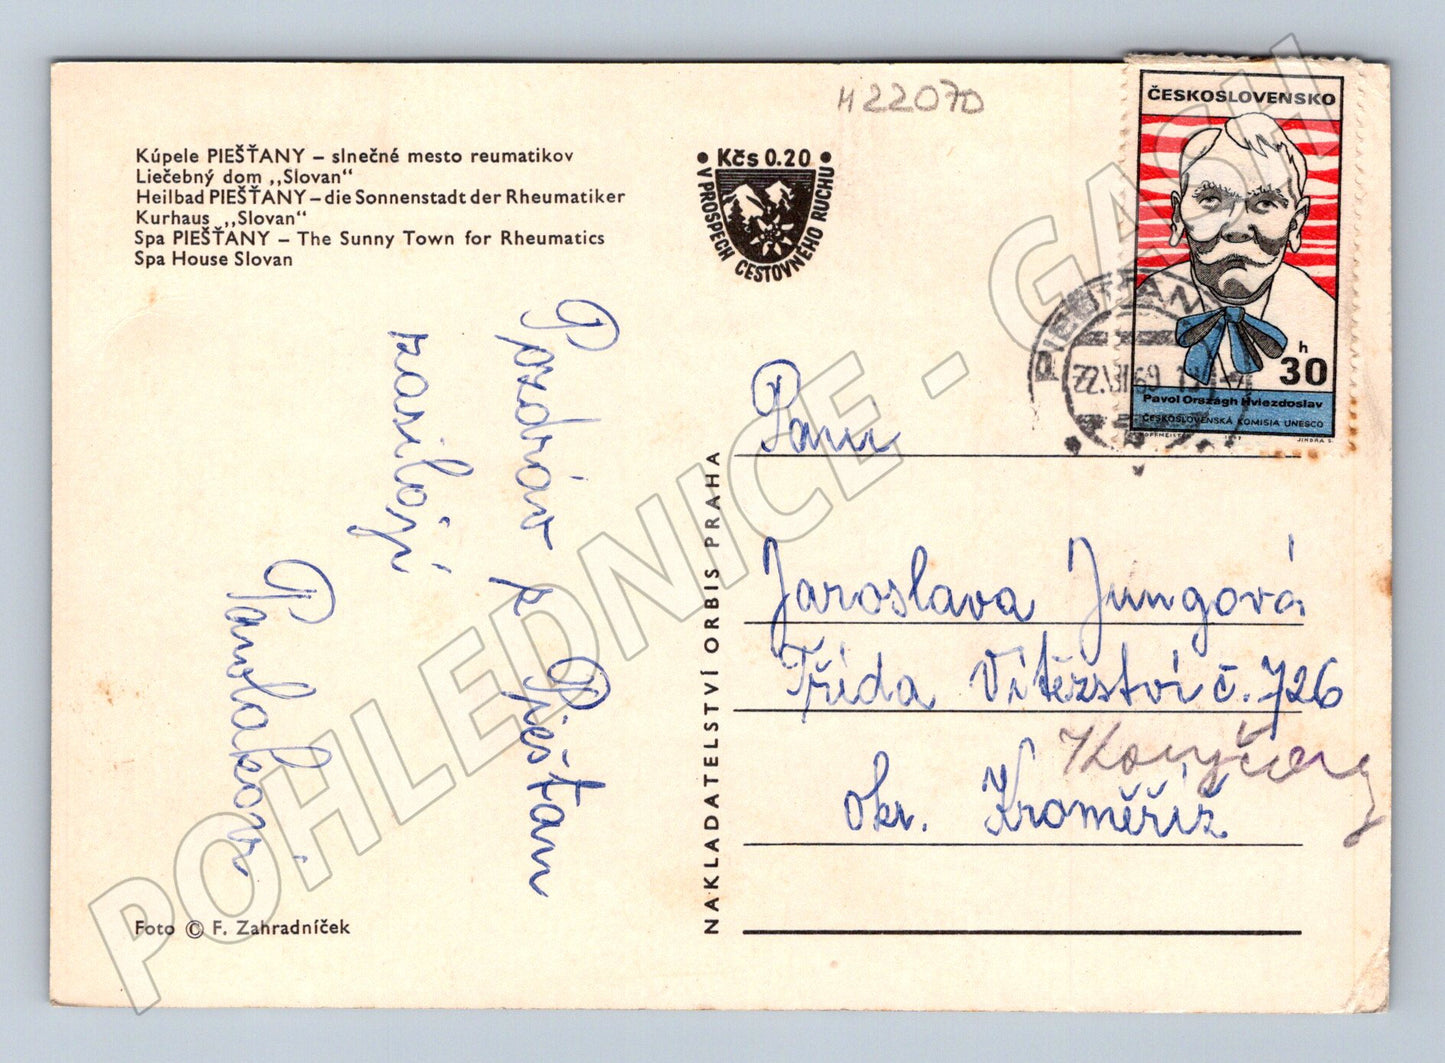 H22070
Kúpele PIEŠŤANY – slnečné mesto reumatikov
Liečebný dom „Slovan"
Heilbad PIEŠŤANY – die Sonnenstadt der Rheumatiker
Kurhaus „Slovan"
Spa PIEŠŤANY – The Sunny Town for Rheumatics
Spa House Slovan
• Kčs 0.20 •
V PROSPECH CESTOVNÉHO RUCHU
ČESKOSLOVENSKO
h
30
Pavol Országh Hviezdoslav
ČESKOSLOVENSKÁ KOMISIA UNESCO
JINDRA S.
PIEŠŤANY
Pozdrav z Piešťan
zasílají
NAKLADATELSTVÍ ORBIS PRAHA
Paní
Jaroslava Jungová
Třída Vítězství č. 726
okr. Kroměříž
Foto © F. Zahradníček
POHLEDNICE - GASH